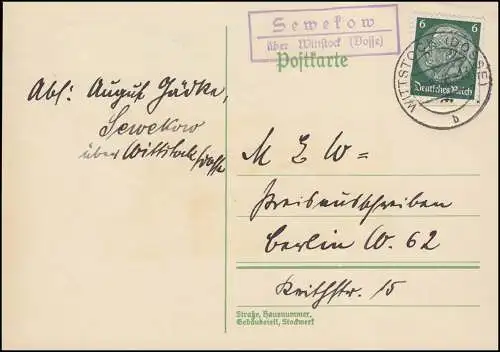 Sewekow
über Wittstock (Dosse)
Postkarte
6 6
Deutsches Reich
WITTSTOCK (DOSSE)
b
Abs: August Jädke,
Sewekow
über Wittstock/Dosse
M E W =
Preisausschreiben
Berlin W. 62
Keithstr. 15
Straße, Hausnummer,
Gebäudeteil, Stockwerk